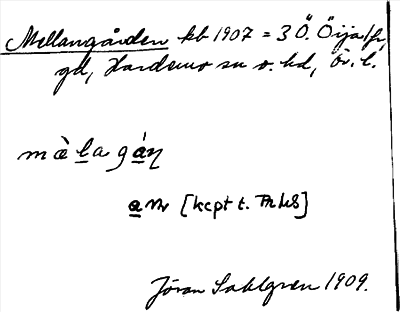 Mellangården kb 1907 = 3 Ö. Öija/fr,
gd, Hardemo sn o. hd, Ör. l.
mὰlagáꞑ
a nr [kcpt t. ThLS]
Jöran Sahlgren 1909.